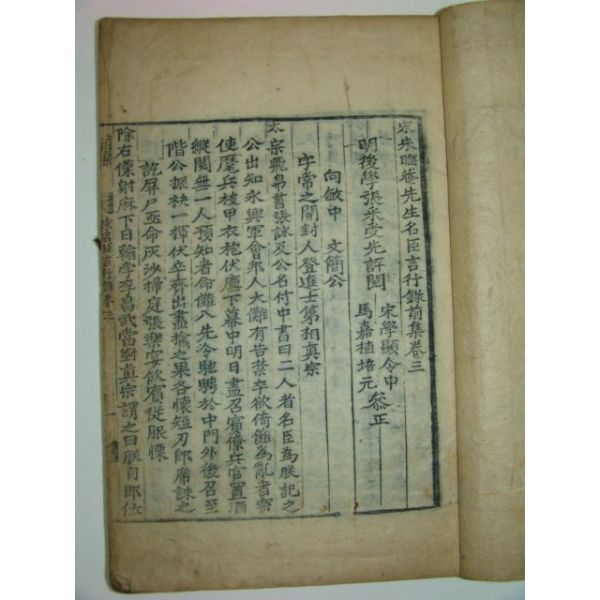 宋朱晦菴先生名臣言行錄前集卷三
明後學張采受先評閱
宋學顯令申
馬嘉植培元
叅正
向敏中 文簡公
字常之開封人登進士第相真宗
太宗飛帛書張詠及公名付中書曰二人者名臣為朕記之
公出知永興軍會邦人大儺有告禁卒欲倚儺為亂者密
使麾兵被甲衣袍伏廡下幕中明日盡召賓僚兵官置酒
縱閱無一人預知者命儺入先令馳騁於中門外後召至
階公振袂一揮伏卒齊出盡擒之果各懷短刀即席誅之
訖屏尸亟命灰沙掃庭張樂宴飲賓從股慄
除右僕射麻下日翰學李昌武當對真宗謂之曰朕自即位